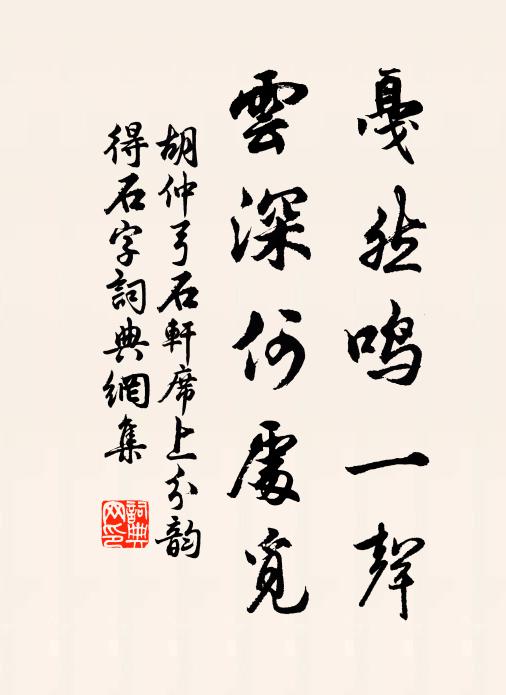 戛然鳴一聲
雲深何處覓
胡仲弓石軒席上分韵
得石字詞典網集
詞典
网印